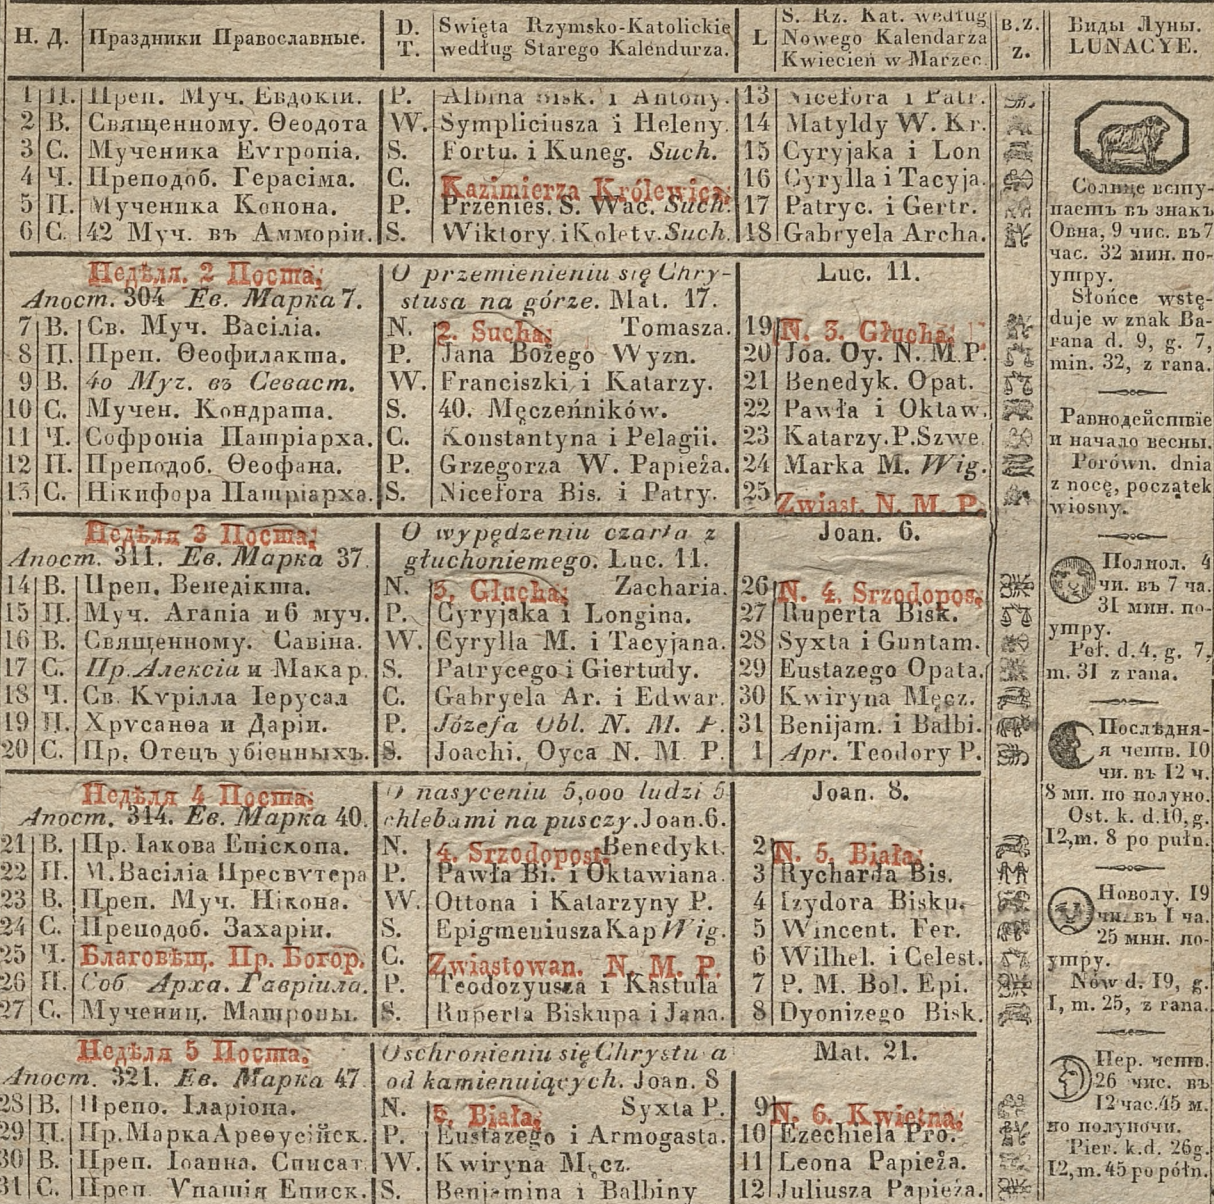 Н. Д. Праздники Православные. D. T. Święta Rzymsko-Katolickie według Starego Kalendarza. L S. Rz. Kat. według Nowego Kalendarza Kwiecień w Marzec. в.z. z. Виды Луны. LUNACYE.
1 П. Преп. Муч. Евдокіи. P. Albina Bisk. i Antony. 13 Nicefora i Patr.
2 В. Священному. Ѳеодота W. Sympliciusza i Heleny. 14 Matyldy W. Kr.
3 С. Мученика Еѵтропіа. S. Fortu. i Kuneg. Such. 15 Cyryjaka i Lon
4 Ч. Преподоб. Герасіма. C. Kazimierza Królewica; 16 Cyrylla i Tacyja.
5 П. Мученика Конона. P. Przenies. S. Wac. Such. 17 Patryc. i Gertr.
6 С. 42 Муч. въ Амморіи. S. Wiktory. i Koletv. Such. 18 Gabryela Archa.
Недѣля. 2 Поста; O przemienieniu się Chry- Luc. 11.
Апост. 304 Ев. Марка 7. stusa na górze. Mat. 17.
7 В. Св. Муч. Васіліа. N. 2. Sucha; Tomasza. 19 N. 3. Głucha;
8 П. Преп. Ѳеофилакта. P. Jana Bożego Wyzn. 20 Joa. Oy. N. M. P.
9 В. 40 Муч. въ Севаст. W. Franciszki i Katarzy. 21 Benedyk. Opat.
10 С. Мучен. Кондрата. S. 40. Męczeńników. 22 Pawła i Oktaw.
11 Ч. Софроніа Патріарха. C. Konstantyna i Pelagii. 23 Katarzy. P. Szwe
12 П. Преподоб. Ѳеофана. P. Grzegorza W. Papieża. 24 Marka M. Wig.
13 С. Нікифора Патріарха. S. Nicefora Bis. i Patry. 25 Zwiast. N. M. P.
Недѣля 3 Поста; O wypędzeniu czarta z Joan. 6.
Апост. 311. Ев. Марка 37. głuchoniemego. Luc. 11.
14 В. Преп. Венедікта. N. 3. Głucha; Zacharia. 26 N. 4. Srzodopos.
15 П. Муч. Агапіа и 6 муч. P. Cyryjaka i Longina. 27 Ruperta Bisk.
16 В. Священному. Савіна. W. Cyrylla M. i Tacyjana. 28 Syxta i Guntam.
17 С. Пр. Алексіа и Макар. S. Patrycego i Giertudy. 29 Eustazego Opata.
18 Ч. Св. Кѵрілла Іерусал C. Gabryela Ar. i Edwar. 30 Kwiryna Męcz.
19 П. Хрѵсанѳа и Даріи. P. Józefa Obl. N. M. P. 31 Benijam. i Balbi.
20 С. Пр. Отецъ убіенныхъ. S. Joachi. Oyca N. M. P. 1 Apr. Teodory P.
Недѣля 4 Поста; O nasyceniu 5,000 ludzi 5 Joan. 8.
Апост. 314. Ев. Марка 40. chlebami na pusczy. Joan. 6.
21 В. Пр. Іакова Епіскопа. N. 4. Srzodopost. Benedykt. 2 N. 5. Biała;
22 П. М. Васіліа Пресвѵтера P. Pawła Bi. i Oktawiana. 3 Rycharda Bis.
23 В. Преп. Муч. Нікона. W. Ottona i Katarzyny P. 4 Izydora Bisku.
24 С. Преподоб. Захаріи. S. Epigmeniusza Kap Wig. 5 Wincent. Fer.
25 Ч. Благовѣщ. Пр. Богор. C. Zwiastowan. N. M. P. 6 Wilhel. i Celest.
26 П. Соб Арха. Гавріила. P. Teodozyusza i Kastula 7 P. M. Bol. Epi.
27 С. Мучениц. Матроны. S. Ruperta Biskupa i Jana. 8 Dyonizego Bisk.
Недѣля 5 Поста; O schronieniu się Chrystu a Mat. 21.
Апост. 321. Ев. Марка 47. od kamienuiących. Joan. 8
28 В. Препо. Іларіона. N. 5. Biała; Syxta P. 9 N. 6. Kwietna;
29 П. Пр. Марка Ареѳусійск. P. Eustazego i Armogasta. 10 Ezechiela Pro.
30 В. Преп. Іоанна. Списат. W. Kwiryna Męcz. 11 Leona Papieża.
31 С. Преп Ѵпатіа Еписк. S. Benjamina i Balbiny 12 Juliusza Papieża.
Солнце всту-
паетъ въ знакъ
Овна, 9 чис. въ 7
час. 32 мин. по-
утру.
Słońce wstę-
duje w znak Ba-
rana d. 9, g. 7,
min. 32, z rana.
Равноденствіе
и начало весны.
Porówn. dnia
z nocę, początek
wiosny.
Полнол. 4
чи. въ 7 ча.
31 мин. по-
утру.
Peł. d. 4, g. 7,
m. 31 z rana.
Послѣдня-
я четв. 10
чи. въ 12 ч.
8 мп. по полуно.
Ost. k. d. 10, g.
12, m. 8 po pułn.
Новолу. 19
чи. въ 1 ча.
25 мин. по-
утру.
Nów d. 19, g.
1, m. 25, z rana.
Пер. четв.
26 чис. въ
12 час. 45 м.
по полуночи.
Pier. k. d. 26 g.
12, m. 45 po półn.